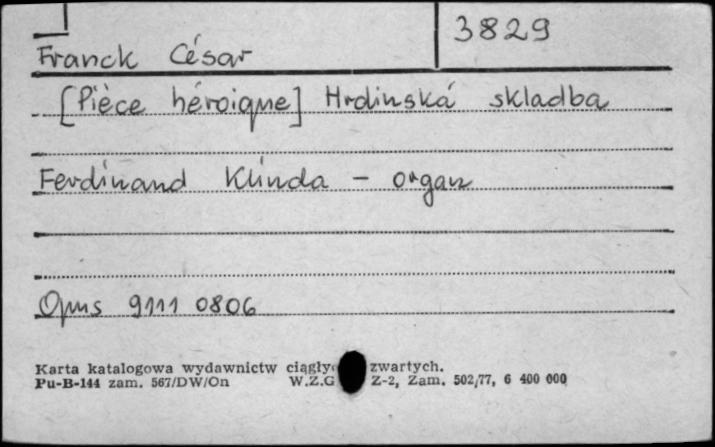 3829
Franck César
[Pièce héroique] Hrdinská skladba
Ferdinand Klinda - organ
Opus 9111 0806
Karta katalogowa wydawnictw ciągły zwartych.
Pu-B-144 zam. 567/DW/On W.Z.G Z-2, Zam. 502/77, 6 400 000